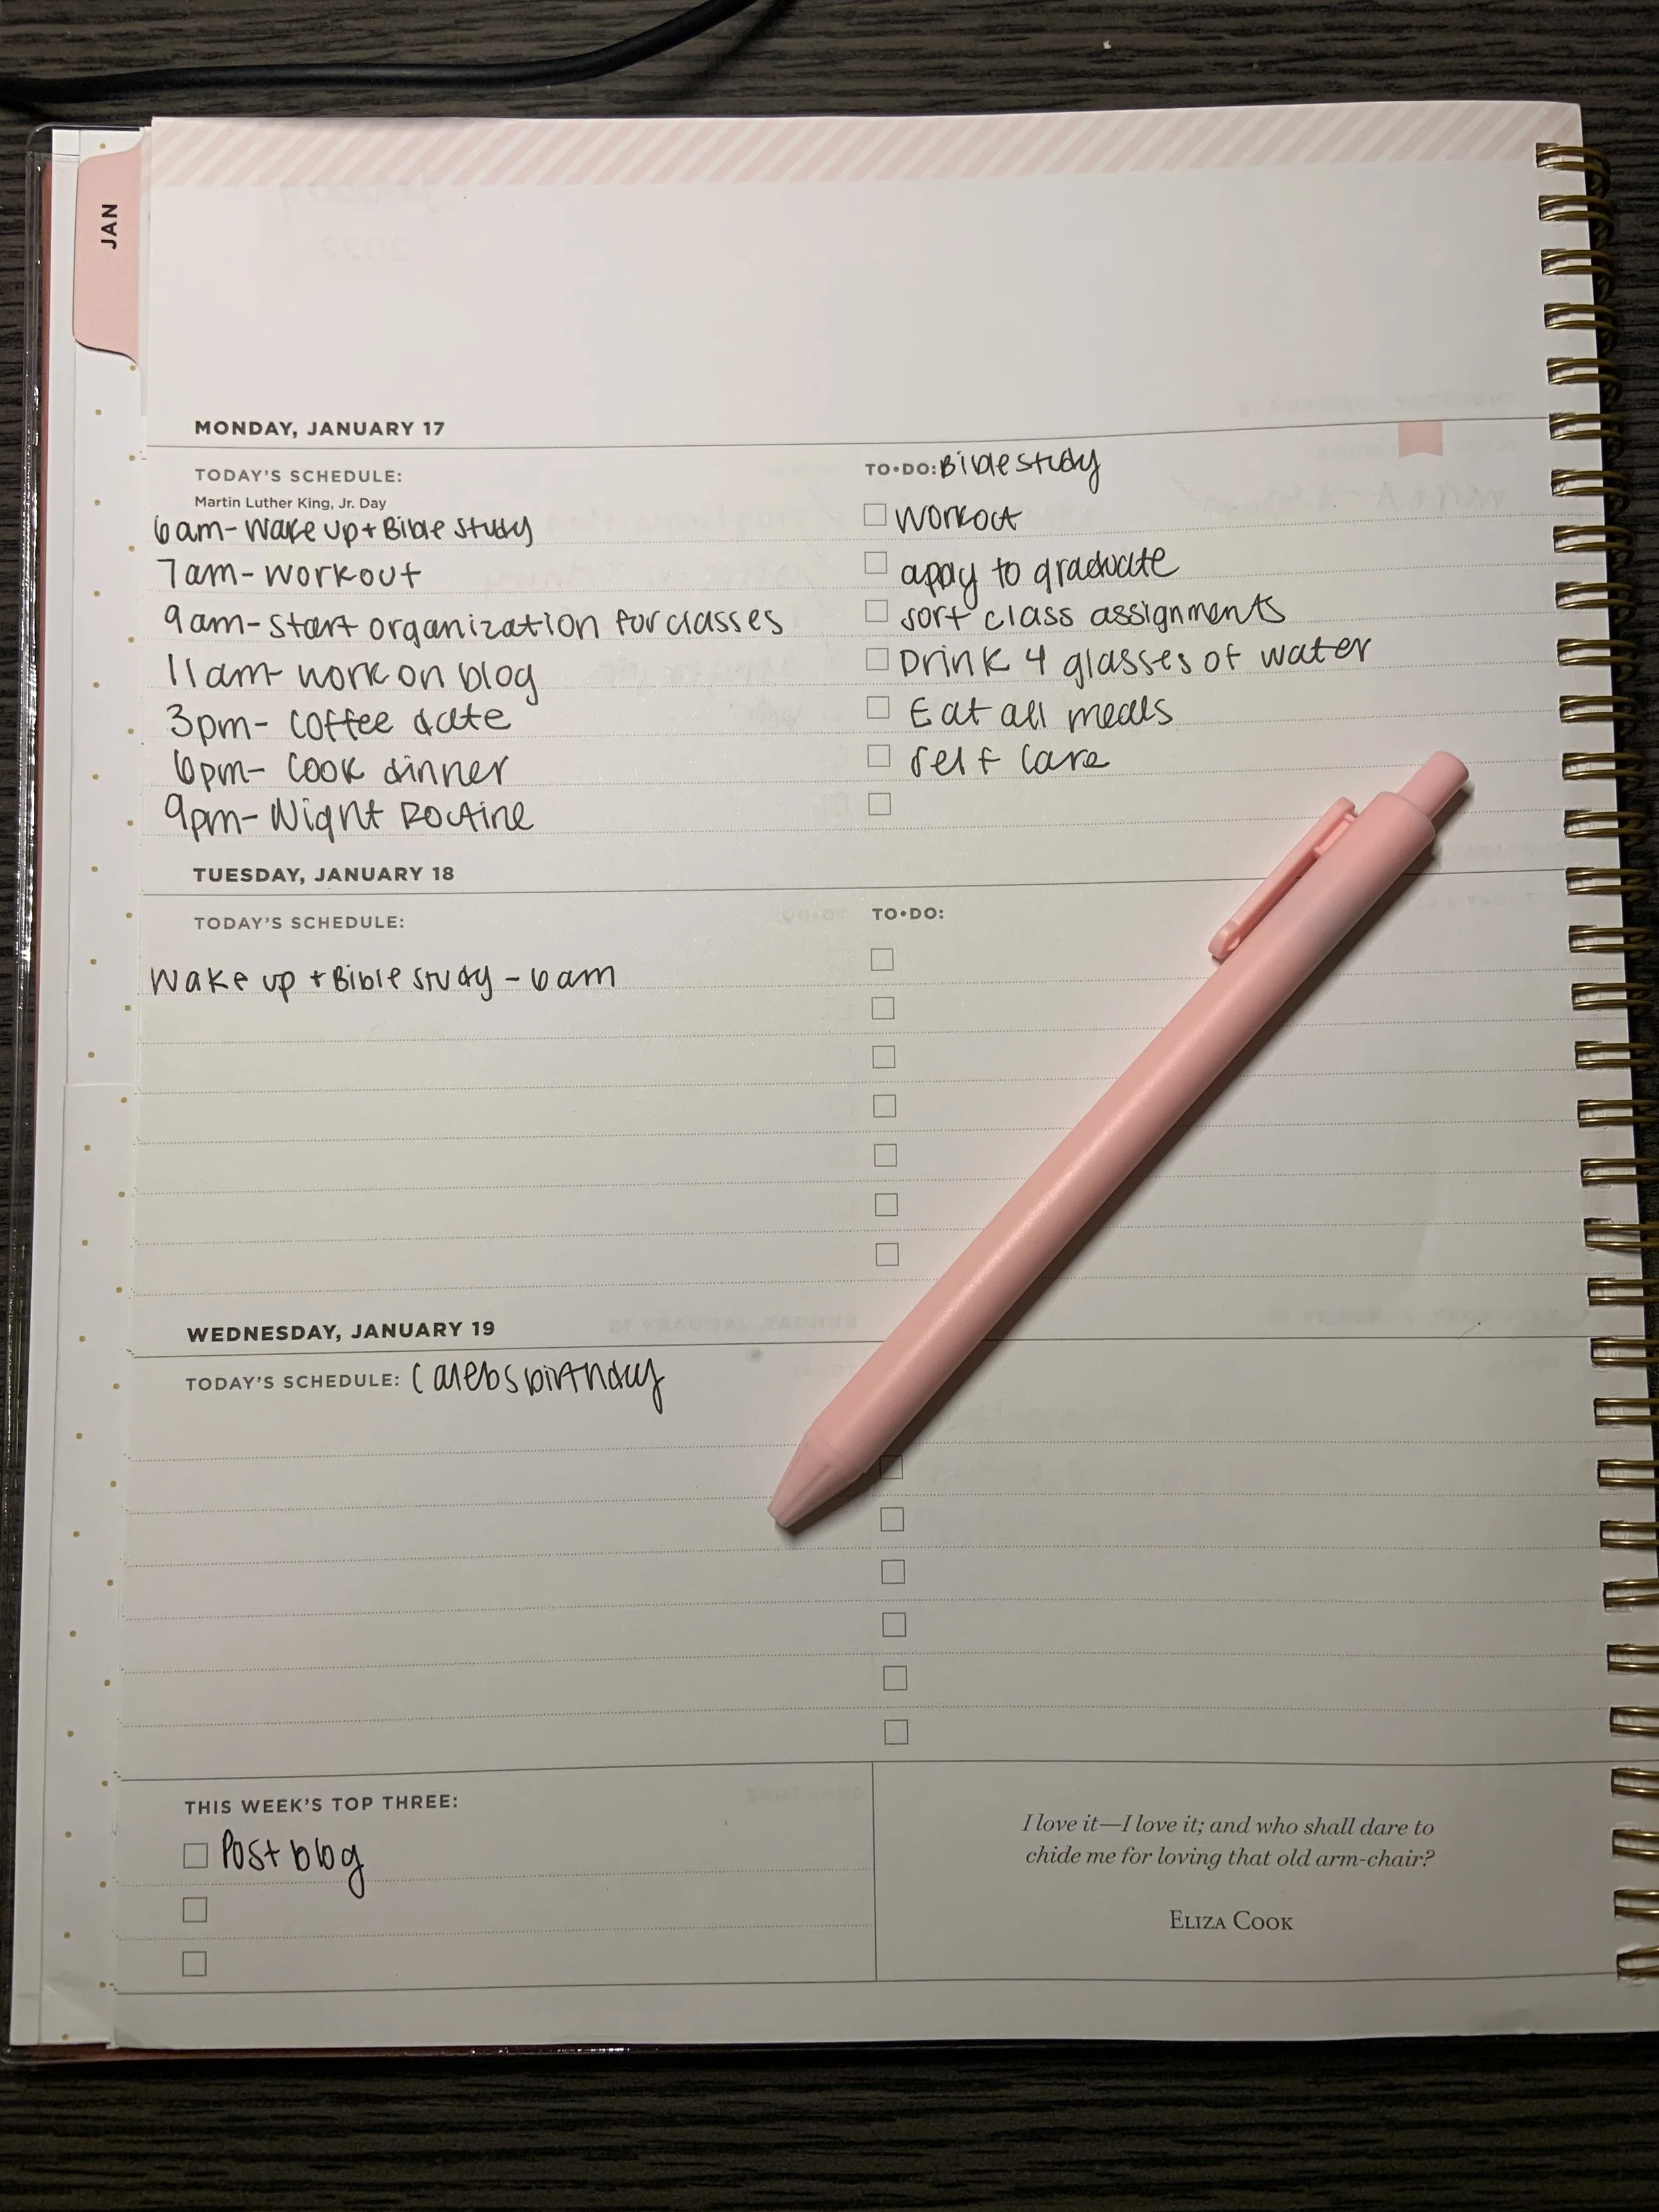 JAN
MONDAY, JANUARY 17
TODAY'S SCHEDULE:
Martin Luther King, Jr. Day
6am- Wake up + Bible study
7am- workout
9am- start organization for classes
11am- work on blog
3pm- coffee date
6pm- Cook dinner
9pm- Night Routine
TO•DO: Bible study
workout
apply to graduate
sort class assignments
Drink 4 glasses of water
Eat all meals
self care
TUESDAY, JANUARY 18
TODAY'S SCHEDULE:
Wake up + Bible study - 6am
TO•DO:
WEDNESDAY, JANUARY 19
TODAY'S SCHEDULE: Calebs birthday
THIS WEEK'S TOP THREE:
Post blog
I love it—I love it; and who shall dare to
chide me for loving that old arm-chair?
ELIZA COOK